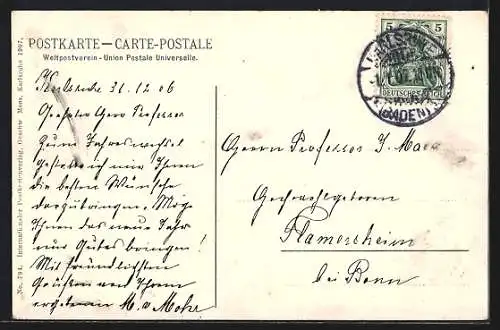 POSTKARTE — CARTE-POSTALE
Weltpostverein - Union Postale Universelle.
Karlsruhe 31.12.06
Geehrter Herr Professor
Zum Jahreswechsel
gestatte ich mir Ihnen
die besten Wünsche
darzubringen. Möge
Ihnen das neue Jahr
nur Gutes bringen!
Mit freundlichsten
Grüßen von Ihrem
ergebenen M. v. Mohr
5 5
DEUTSCHES REICH
(BADEN)
Herrn Professor J.
Hochwohlgeboren
Flamersheim
bei Bonn
No. 794. Internationaler Postkartenverlag, Karlsruhe 1907.